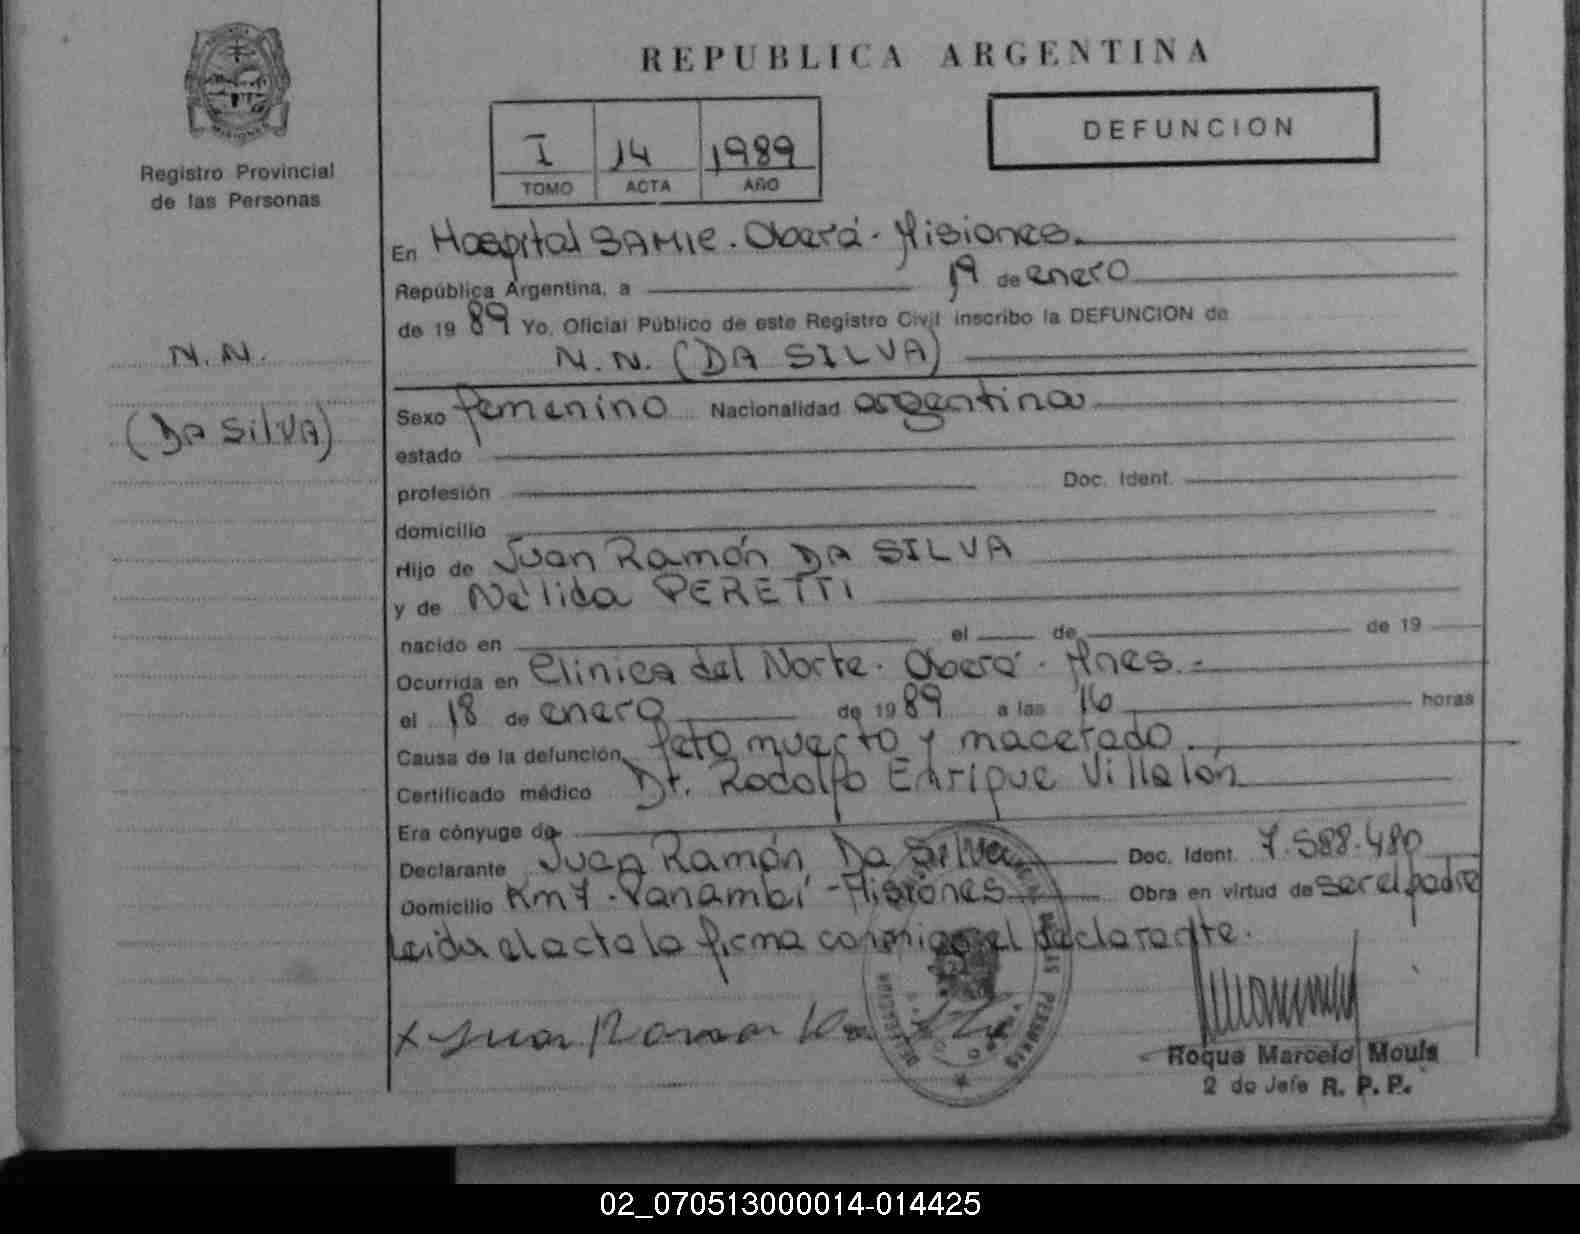 REPUBLICA ARGENTINA
MISIONES
Registro Provincial
de las Personas
I 14 1989
TOMO ACTA AÑO
DEFUNCION
En Hospital SAMIC. Oberá. Misiones.
República Argentina, a 19 de enero
de 1989 Yo, Oficial Público de este Registro Civil inscribo la DEFUNCION de
N.N. (DA SILVA)
N.N.
(DA SilVA)
Sexo femenino Nacionalidad argentina
estado
profesión Doc. Ident.
domicilio
Hijo de Juan Ramón DA SILVA
y de Nélida PERETTI
nacido en el de de 19
Ocurrida en Clínica del Norte. Oberá. Mnes.
el 18 de enero de 1989 a las 16 horas
Causa de la defunción feto muerto y macerado.
Certificado médico Dr. Rodolfo Enrique Villalón
Era cónyuge de
Declarante Juan Ramón Da Silva Doc. Ident. 7.588.480
Domicilio Km 7 - Panambí - Misiones Obra en virtud de ser el padre
Leída el acta la firma conmigo el declarante.
x Juan Ramon
Roque Marcelo Mouis
2 do Jefe R. P. P.
02_070513000014-014425